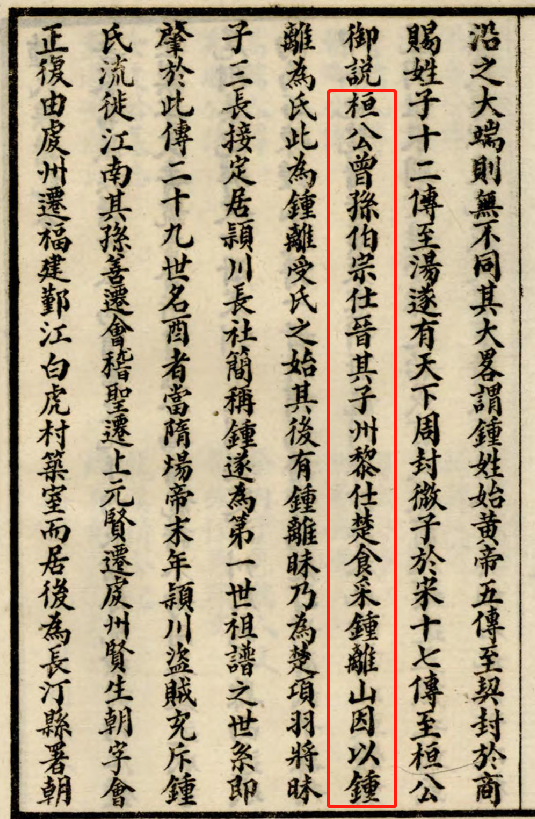 沿之大端則無不同其大畧謂鍾姓始黄帝五傳至契封於商
賜姓子十二傳至湯遂有天下周封微子於宋十七傳至桓公
御説桓公曾孫伯宗仕晉其子州黎仕楚食采鍾離山因以鍾
離為氏此為鍾離受氏之始其後有鍾離昧乃為楚項羽將昧
子三長接定居頴川長社簡稱鍾遂為第一世祖譜之世系即
肇於此傳二十九世名酉者當隋煬帝末年頴川盜賊充斥鍾
氏流徙江南其孫善遷會稽聖遷上元賢遷虔州賢生朝字會
正復由虔州遷福建鄞江白虎村築室而居後為長汀縣署朝